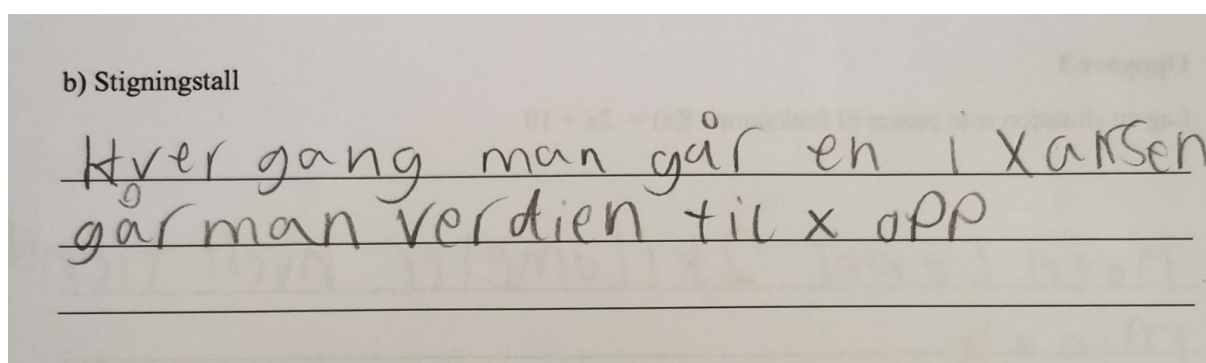 b) Stigningstall
Hver gang man går en i xaksen
går man verdien til x opp